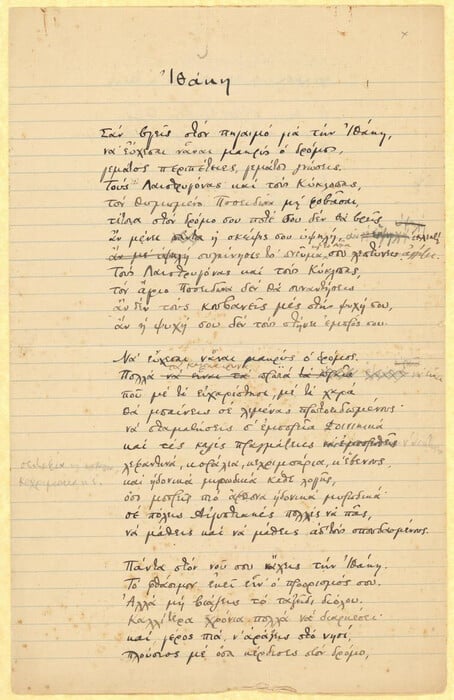 Ἰθάκη
Σὰν βγεῖς στὸν πηγαιμὸ γιὰ τὴν Ἰθάκη,
νὰ εὔχεσαι νἆναι μακρὺς ὁ δρόμος,
γεμάτος περιπέτειες, γεμάτος γνώσεις.
Τοὺς Λαιστρυγόνας καὶ τοὺς Κύκλωπας,
τὸν θυμωμένο Ποσειδῶνα μὴ φοβᾶσαι,
τέτοια στὸν δρόμο σου ποτέ σου δὲν θὰ βρεῖς
ἂν μένει ἡ σκέψις σου ὑψηλή, ἂν ἐκλεκτὴ
συγκίνησις τὸ πνεῦμα
Τοὺς Λαιστρυγόνας καὶ τοὺς Κύκλωπας,
τὸν ἄγριο Ποσειδῶνα δὲν θὰ συναντήσεις
ἂν δὲν τοὺς κουβανεῖς μὲς στὴν ψυχή σου,
ἂν ἡ ψυχή σου δὲν τοὺς στήνει ἐμπρός σου.
Νὰ εὔχεσαι νἆναι μακρὺς ὁ δρόμος.
Πολλὰ τὰ καλοκαιρινὰ πρωϊὰ νὰ εἶναι
ποῦ μὲ τί εὐχαρίστησι, μὲ τί χαρὰ
θὰ μπαίνεις σὲ λιμένας πρωτοειδωμένους·
νὰ σταματήσεις σ' ἐμπορεῖα Φοινικικὰ
καὶ τὲς καλὲς πραγμάτειες
σεντέφια κ
κεχριμπάρια κ ἔ.
καὶ ἡδονικὰ μυρωδικὰ κάθε λογῆς,
ὅσο μπορεῖς πιὸ ἄφθονα ἡδονικὰ μυρωδικά·
σὲ πόλεις Αἰγυπτιακὲς πολλὲς νὰ πᾷς,
νὰ μάθεις καὶ νὰ μάθεις ἀπ' τοὺς σπουδασμένους.
Πάντα στὸν νοῦ σου νἄχεις τὴν Ἰθάκη.
Τὸ φθάσιμον ἐκεῖ εἶν' ὁ προορισμός σου.
Ἀλλὰ μὴ βιάζεις τὸ ταξεῖδι διόλου.
Καλλίτερα χρόνια πολλὰ νὰ διαρκέσει·
καὶ γέρος πιὰ ν' ἀράξεις στὸ νησί,
πλούσιος μὲ ὅσα κέρδισες στὸν δρόμο,